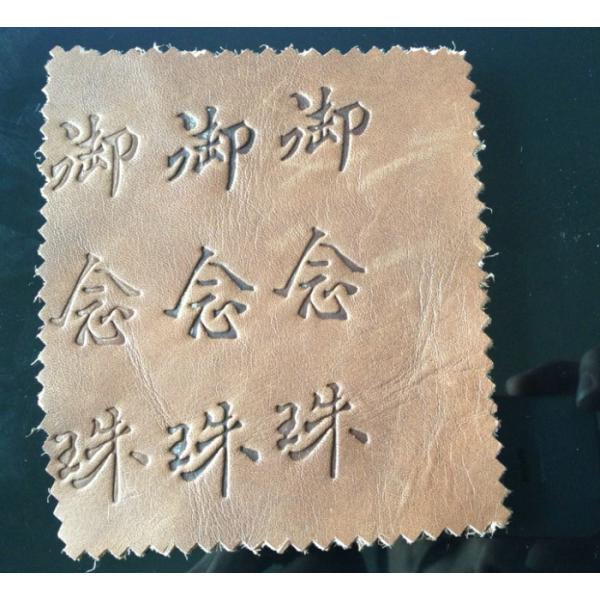 御念珠
御念珠
御念珠